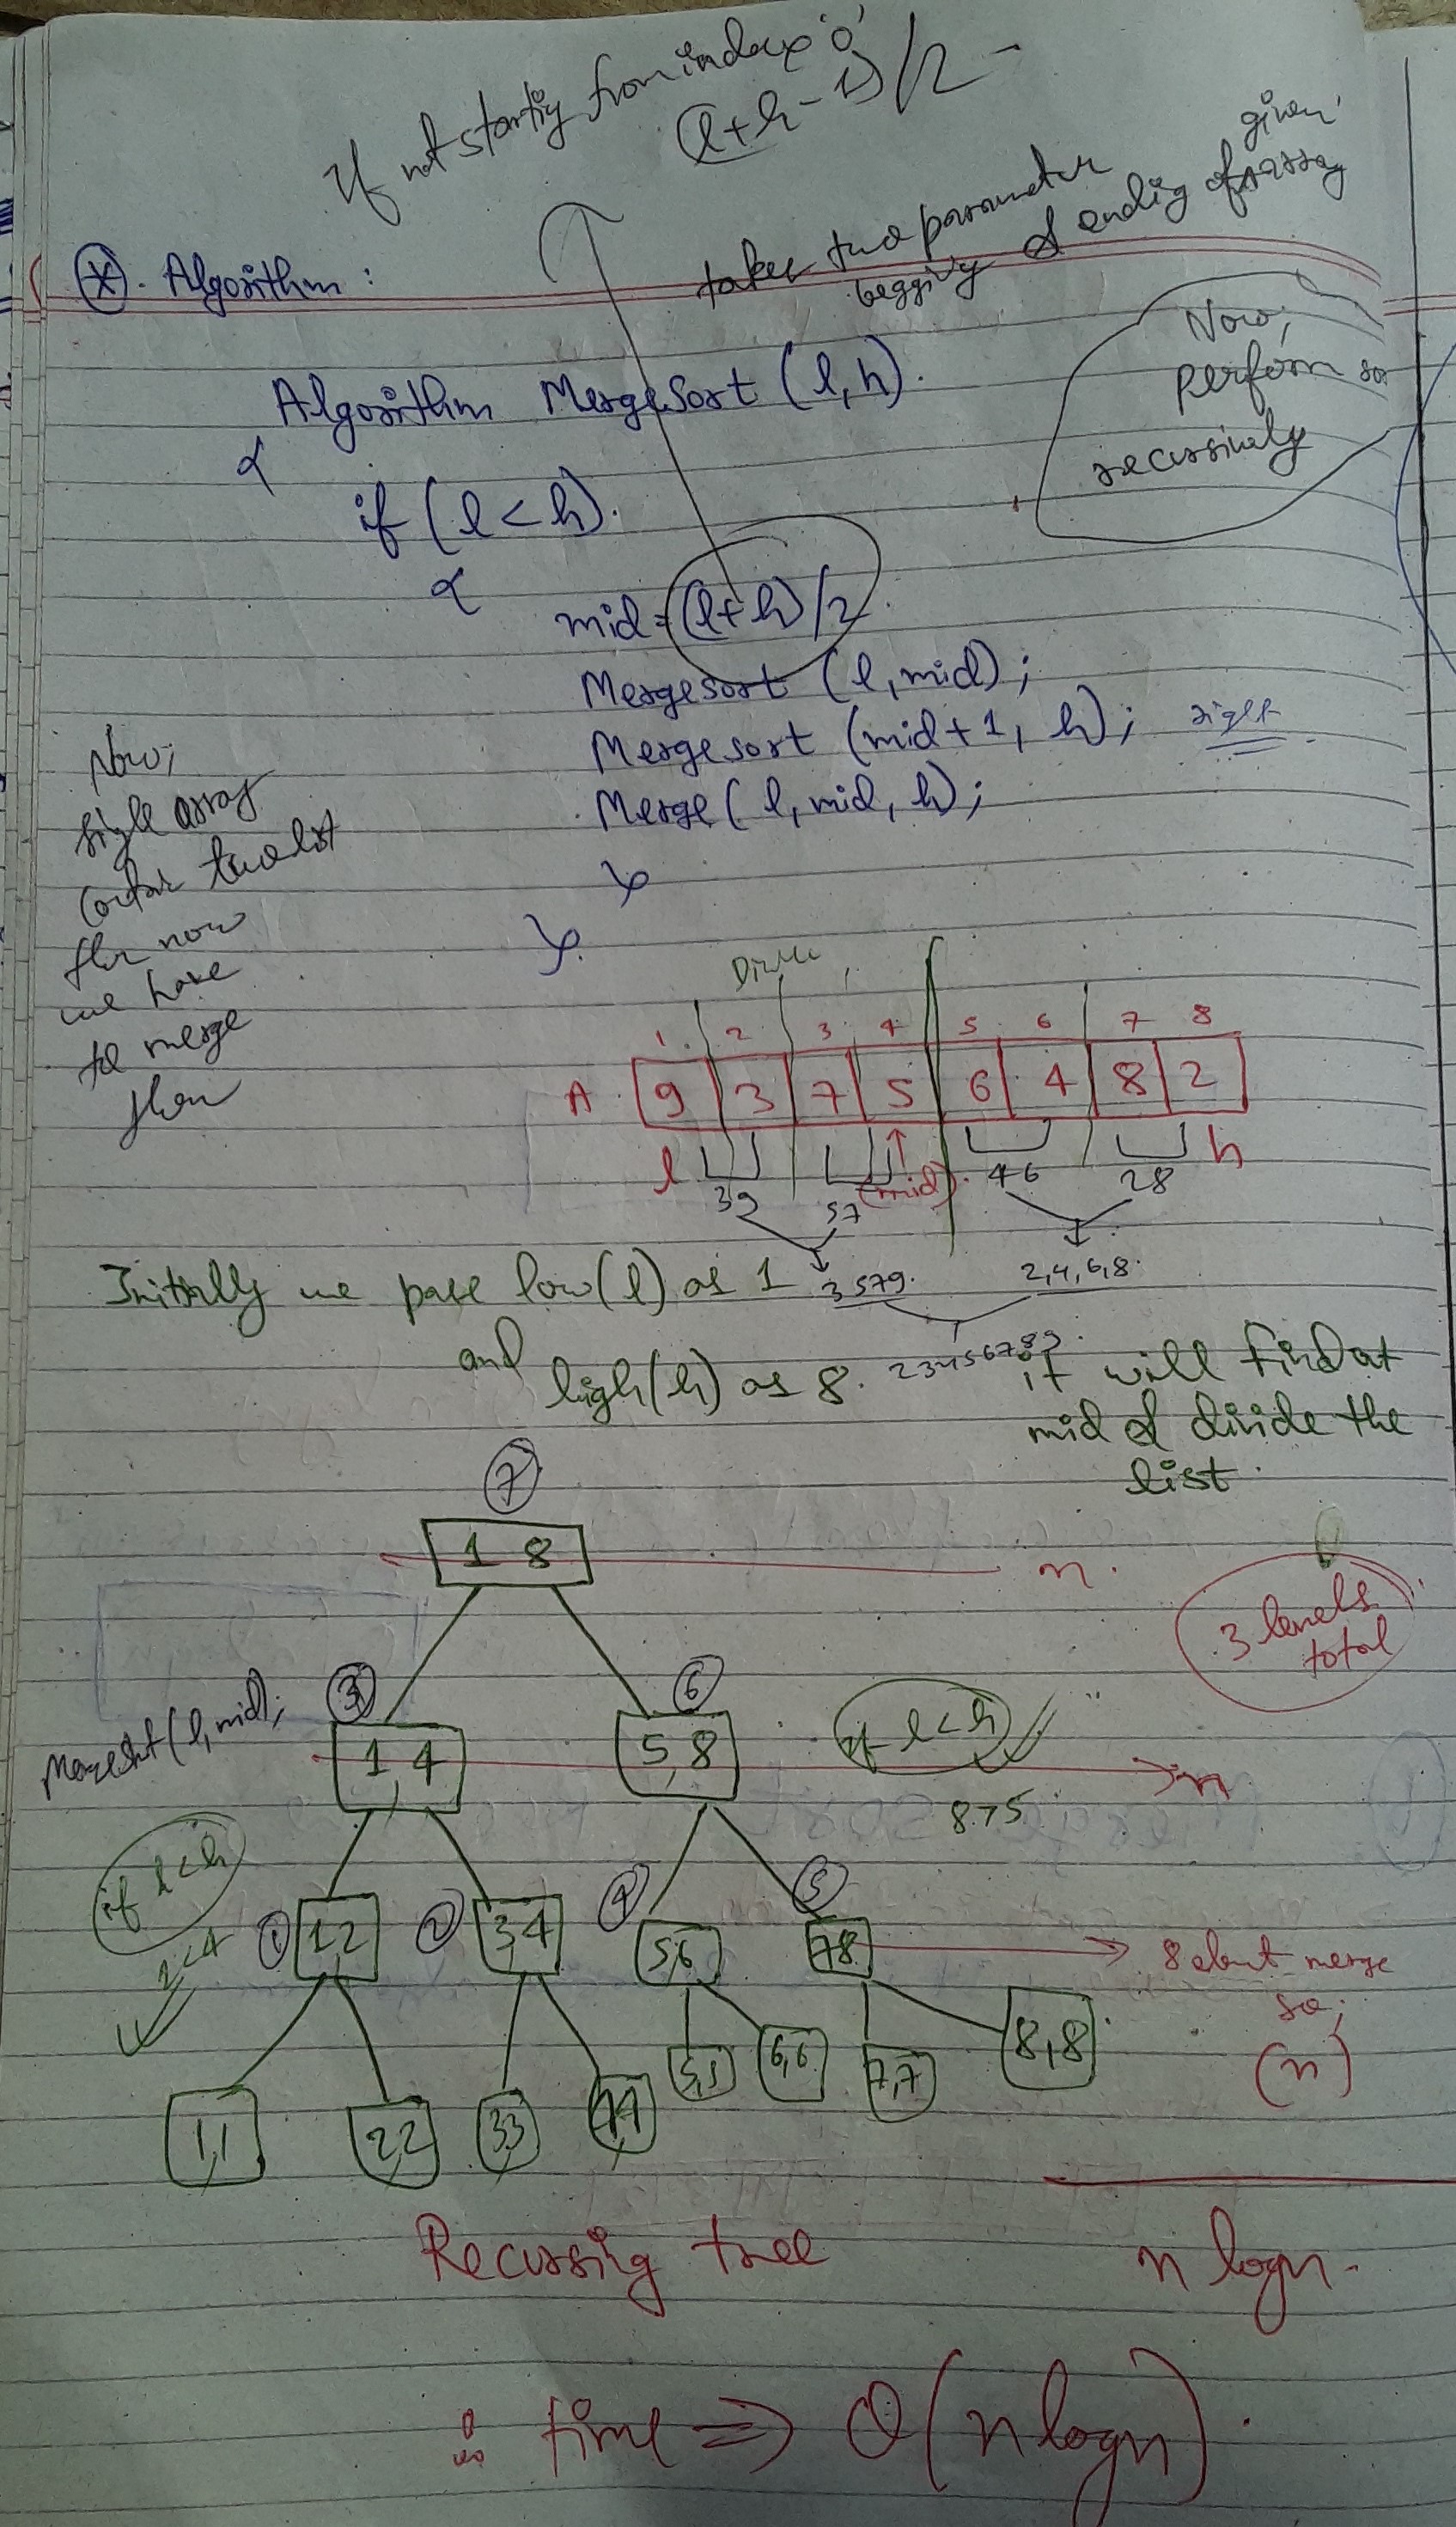 If not starting from index '0'
(l+h-1)/2
takes two parameter
beggig & endig of given array
(*). Algorithm :
Now,
perform so
recursively
Algorithm MergeSort (l,h).
{
if (l<h).
{
mid = (l+h)/2.
Mergesort (l,mid);
Mergesort (mid+1, h); right
Merge( l,mid, h);
}
}.
Now;
sigle array
contain two list
now
we have
to merge
them
Divide
1 2 3 4 5 6 7 8
A 9 3 7 5 6 4 8 2
l (mid). h
39 57 46 28
3 579. 2,4,6,8.
Initially we pass low(l) as 1
and high(h) as 8.
23456789.
it will find out
mid & divide the
list.
7
1 8
n.
3 levels
total
MergeSort(l,mid);
3 6
1,4 5,8
if l<h
n
8>5
if l<h
1<4
1 2 4 5
1,2 3,4 5,6 7,8
8 elemt merge
so;
(n)
1,1 2,2 3,3 4,4 5,5 6,6 7,7 8,8
Recursing tree
n logn.
∴ time => O(n logn).